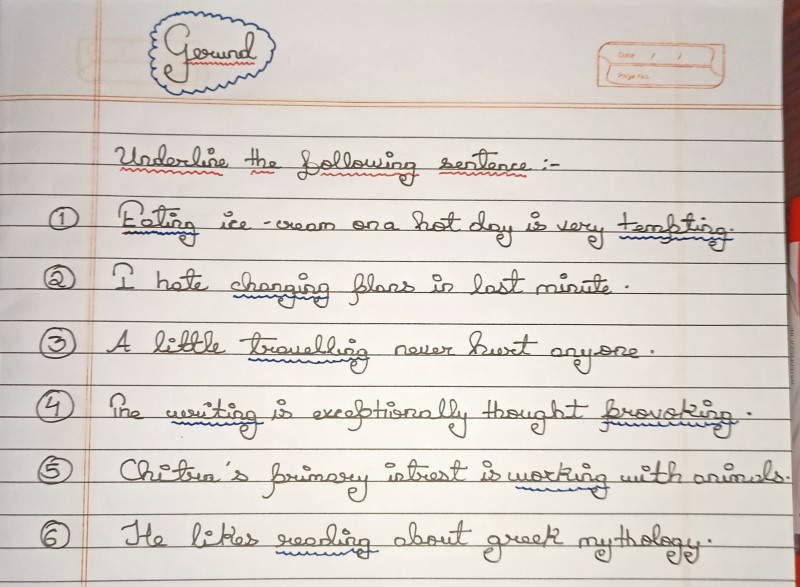 Gerund
Date / /
Page No.
Underline the following sentence :-
1 Eating ice-cream on a hot day is very tempting.
2 I hate changing plans in last minute.
3 A little travelling never hurt anyone.
4 The writing is exceptionally thought provoking.
5 Chitra's primary intrest is working with animals.
6 He likes reading about greek mythology.